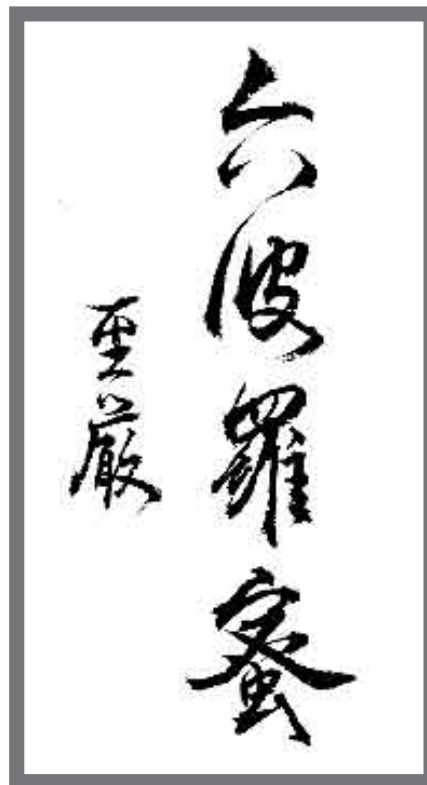 六波羅蜜
聖嚴